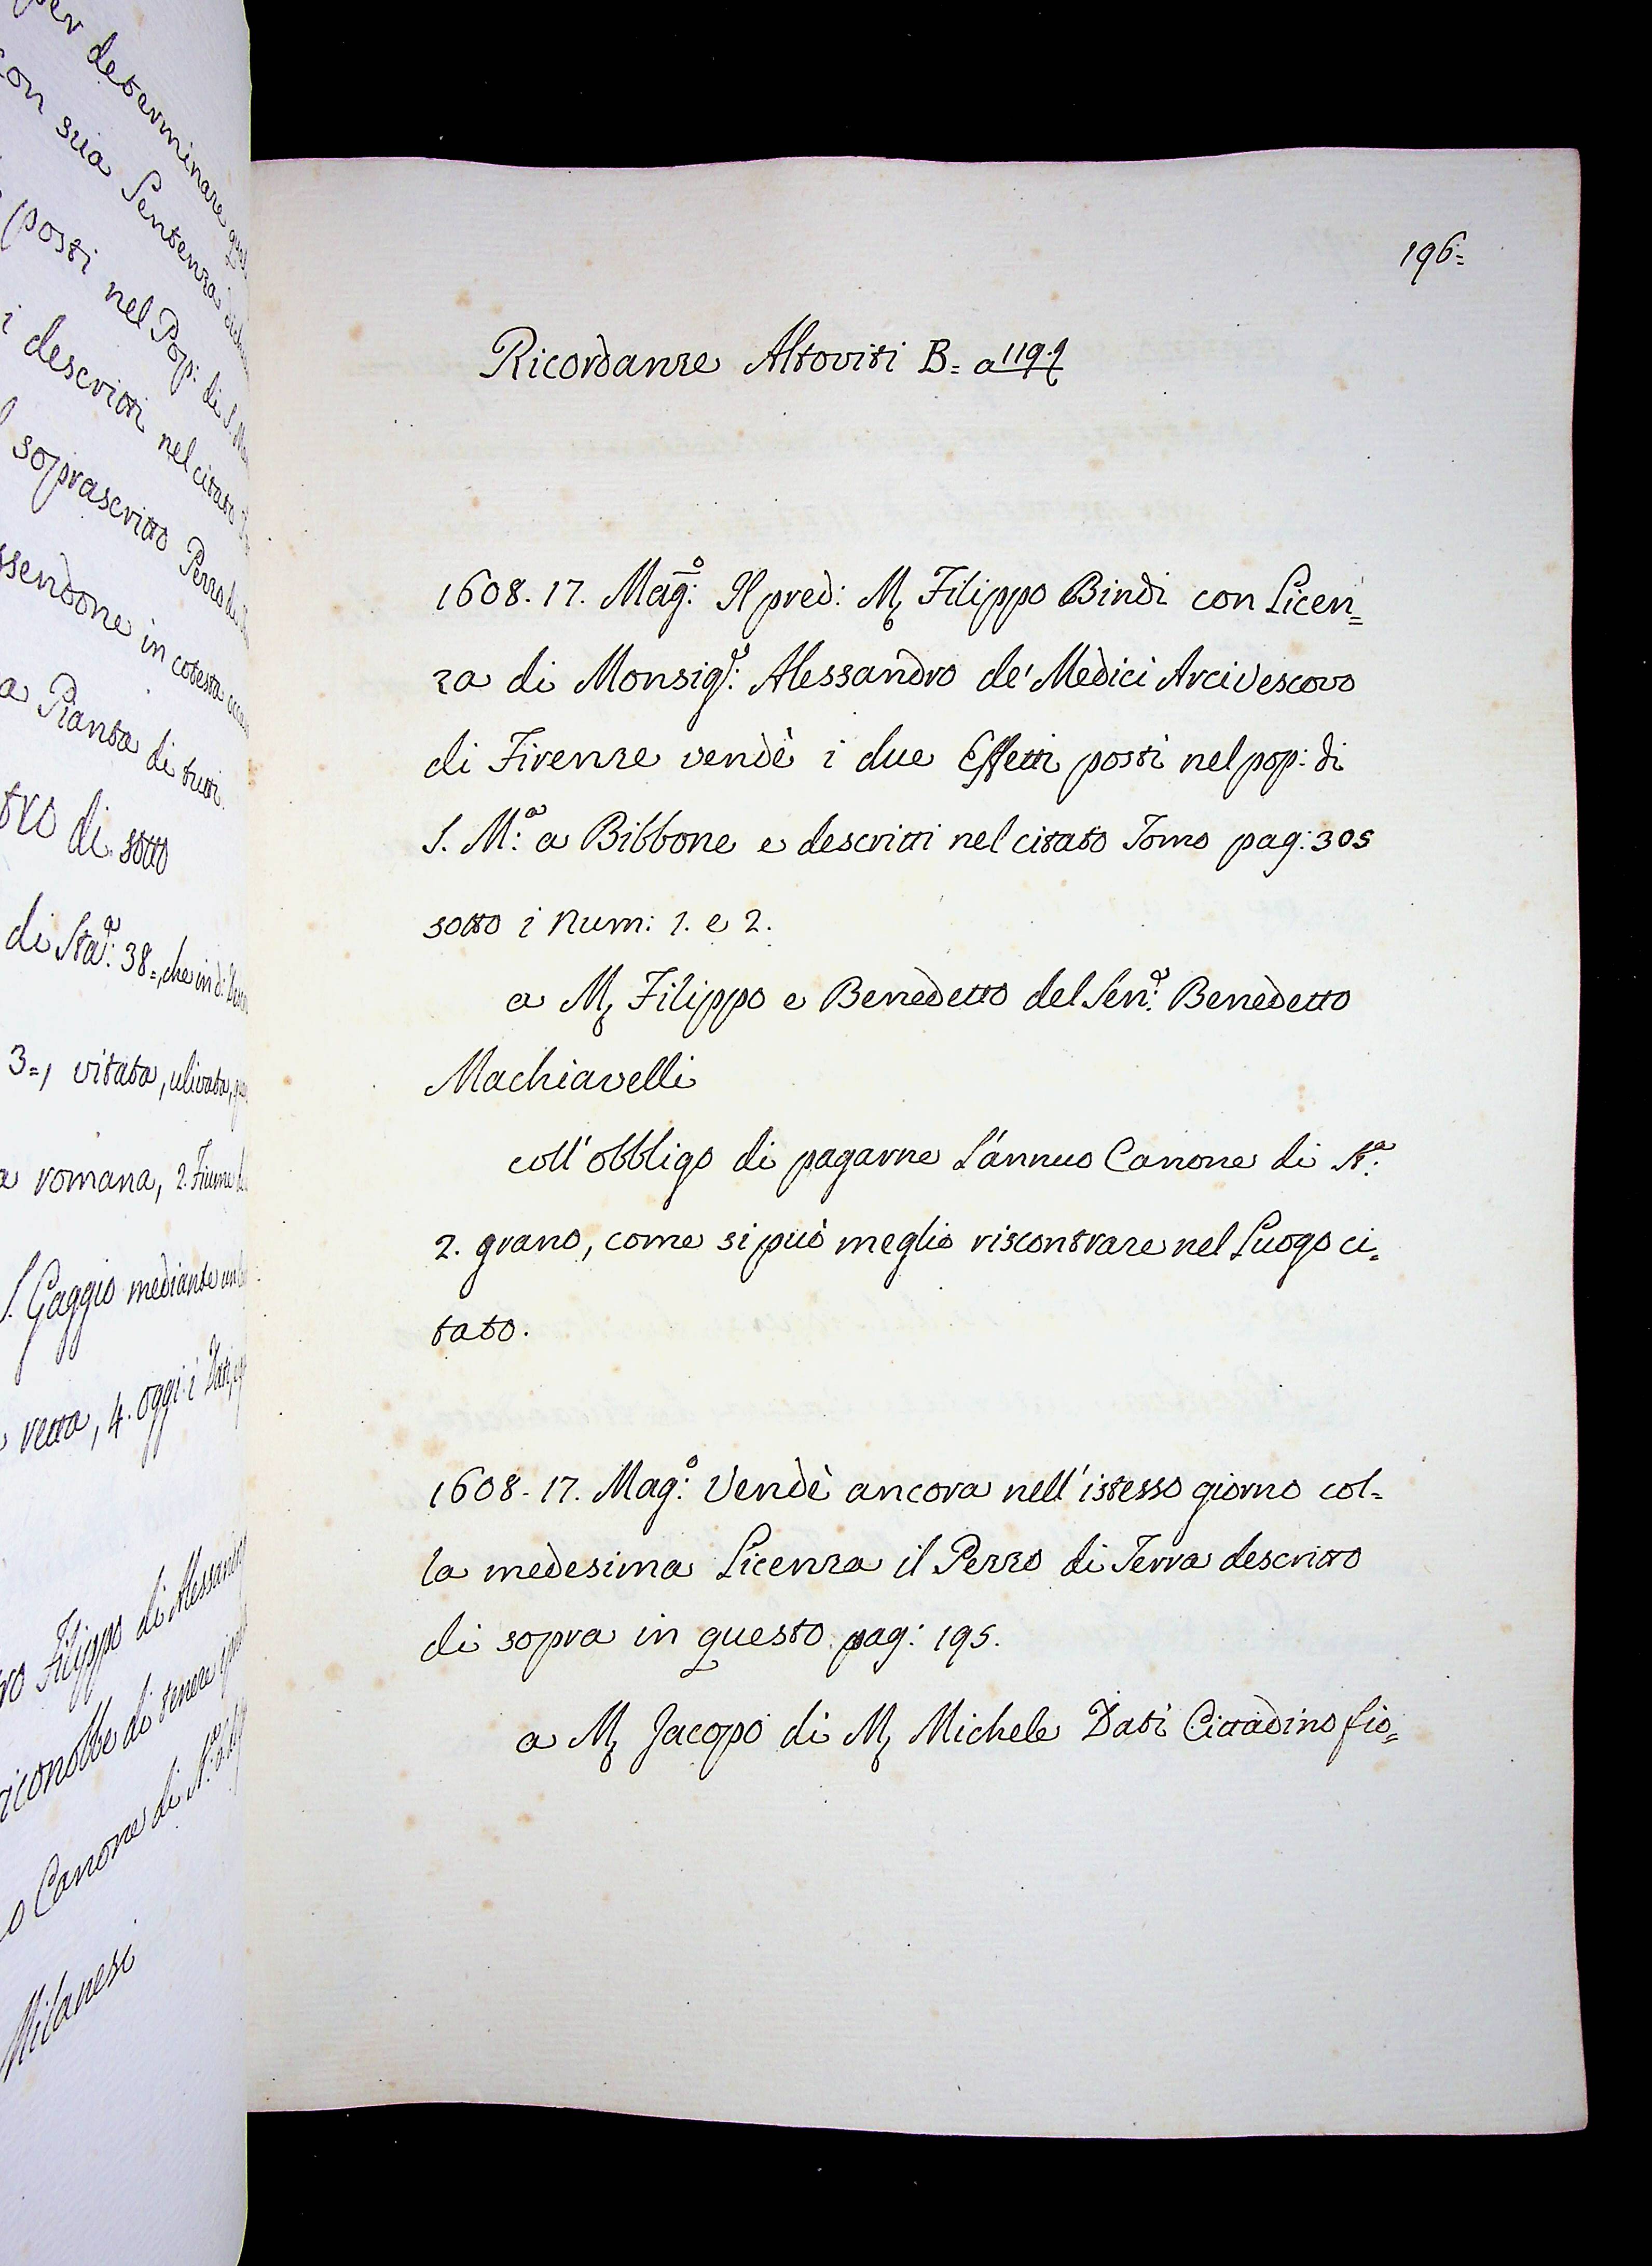 per determinare
con sua Sentenza
posti nel Pop: di S. Ma
i descritti nel citato
soprascritto Pezzo di
ssendone in cotesta
a Pianta di tutti.
tro di sotto
di Staᵃ: 38=, che in d:
3=, vitata, ulivata,
a romana, 2. Fiume
S. Gaggio mediante un
vetta, 4. oggi i Dati,
ro Filippo di Alessandro
riconobbe di tenere
o Canone di Sᵃ:
Milanesi
196=
Ricordanze Altoviti B= a 119.
1608. 17. Magᵒ: Il pred: Mʳ Filippo Bindi con Licen=
za di Monsigʳ: Alessandro de' Medici Arcivescovo
di Firenze vendè i due Effetti posti nel pop: di
S. Mᵃ: a Bibbone e descritti nel citato Tomo pag: 305
sotto i Num: 1. e 2.
a Mʳ Filippo e Benedetto del Senʳ: Benedetto
Machiavelli
coll'obbligo di pagarne l'annuo Canone di Stᵃ:
2. grano, come si può meglio riscontrare nel Luogo ci=
tato.
1608. 17. Magᵒ: Vendè ancora nell'istesso giorno col=
la medesima Licenza il Pezzo di Terra descritto
di sopra in questo pag: 195.
a Mʳ Jacopo di Mʳ Michele Dati Cittadino fio=